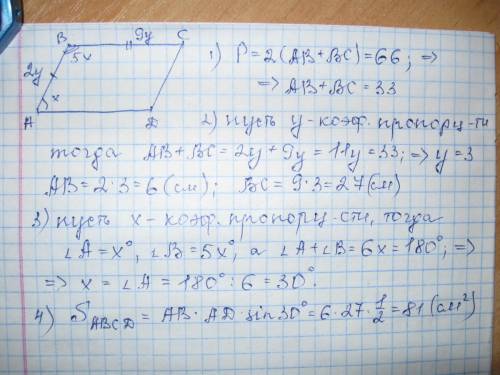 B 9y C
5x
2y
x
A D
1) P = 2(AB+BC) = 66; =>
=> AB+BC = 33
2) пусть y - коэф. пропорц-ти
тогда AB+BC = 2y + 9y = 11y = 33; => y = 3
AB = 2·3 = 6 (см); BC = 9·3 = 27 (см)
3) пусть x - коэф. пропорц-сти, тогда
∠A = x°, ∠B = 5x°, а ∠A + ∠B = 6x = 180°; =>
=> x = ∠A = 180° : 6 = 30°.
4) S_ABCD = AB · AD · sin 30° = 6 · 27 · 1/2 = 81 (см²)